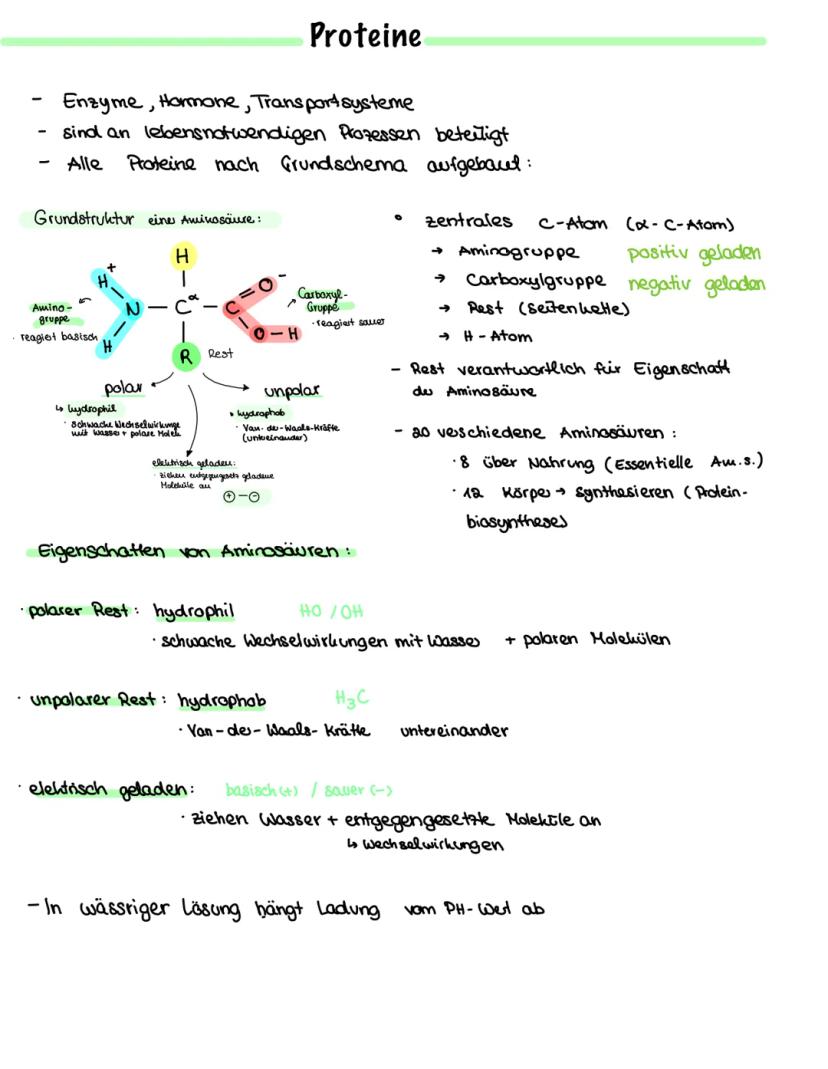 Proteine
- Enzyme, Hormone, Transportsysteme
- sind an lebensnotwendigen Prozessen beteiligt
- Alle Proteine nach Grundschema aufgebaut:
Grundstruktur einer Aminosäure:
H
H +
N – C α – C
O –
O – H
H
R Rest
Amino-
gruppe
· reagiert basisch
Carboxyl-
Gruppe
· reagiert sauer
polar
↳ hydrophil
· schwache Wechselwirkunge
mit Wasser + polare Molek.
unpolar
• hydrophob
· Van-der-Waals-Kräfte
(untereinander)
elektrisch geladen:
· ziehen entgegengesetz geladene
Moleküle an
⊕–⊖
• zentrales C-Atom (α-C-Atom)
→ Aminogruppe positiv geladen
→ Carboxylgruppe negativ geladen
→ Rest (Seitenkette)
→ H-Atom
- Rest verantwortlich für Eigenschaft
der Aminosäure
- 20 verschiedene Aminosäuren:
· 8 über Nahrung (Essentielle Am.s.)
· 12 Körper → synthesieren (Protein-
biosynthese)
Eigenschaften von Aminosäuren:
· polarer Rest: hydrophil HO / OH
· schwache Wechselwirkungen mit Wasser + polaren Molekülen
· unpolarer Rest: hydrophob H₃C
· Van-der-Waals-Kräfte untereinander
· elektrisch geladen: basisch (+) / sauer (-)
· ziehen Wasser + entgegengesetzte Moleküle an
↳ Wechselwirkungen
- In wässriger Lösung hängt Ladung vom PH-Wert ab